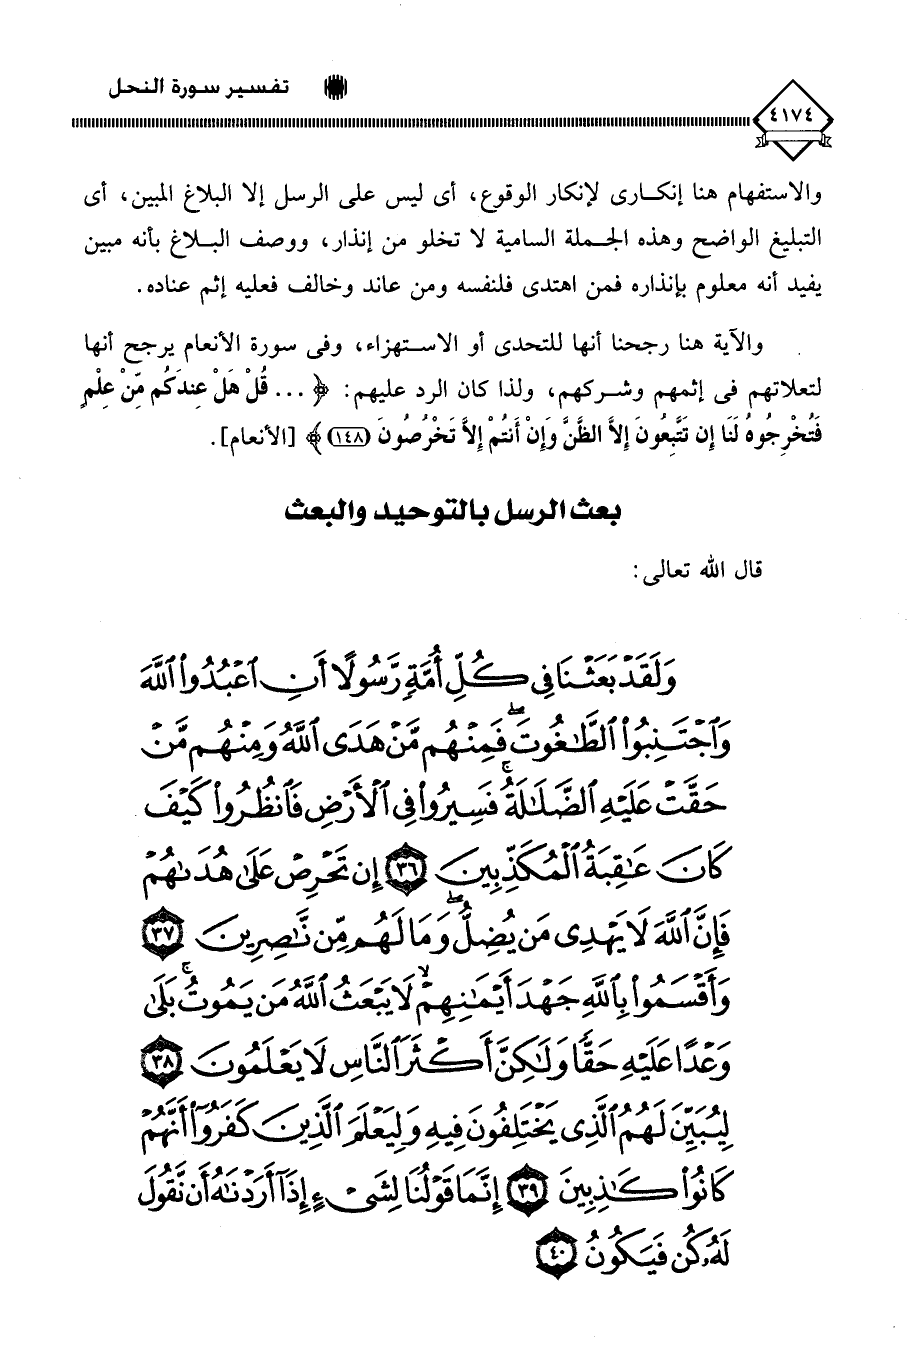 تفسير سورة النحل
٤١٧٤
والاستفهام هنا إنكـارى لإنكار الوقوع، أى ليس على الرسل إلا البلاغ المبين، أى
التبليغ الواضح وهذه الجـملة السامية لا تخلو من إنذار، ووصف البـلاغ بأنه مبين
يفيد أنه معلوم بإنذاره فمن اهتدى فلنفسه ومن عاند وخالف فعليه إثم عناده.
والآية هنا رجحنا أنها للتحدى أو الاستهزاء، وفى سورة الأنعام يرجح أنها
لتعلاتهم فى إثمهم وشركهم، ولذا كان الرد عليهم: ﴿ ... قُلْ هَلْ عِندَكُم مِّنْ عِلْمٍ
فَتُخْرِجُوهُ لَنَا إِن تَتَّبِعُونَ إِلاَّ الظَّنَّ وَإِنْ أَنتُمْ إِلاَّ تَخْرُصُونَ (١٤٨)﴾ [الأنعام].
بعث الرسل بالتوحيد والبعث
قال الله تعالى:
وَلَقَدْ بَعَثْنَا فِى كُلِّ أُمَّةٍ رَّسُولًا أَنِ ٱعْبُدُوا۟ ٱللَّهَ
وَٱجْتَنِبُوا۟ ٱلطَّـٰغُوتَ ۖ فَمِنْهُم مَّنْ هَدَى ٱللَّهُ وَمِنْهُم مَّنْ
حَقَّتْ عَلَيْهِ ٱلضَّلَـٰلَةُ ۚ فَسِيرُوا۟ فِى ٱلْأَرْضِ فَٱنظُرُوا۟ كَيْفَ
كَانَ عَـٰقِبَةُ ٱلْمُكَذِّبِينَ ٣٦ إِن تَحْرِصْ عَلَىٰ هُدَىٰهُمْ
فَإِنَّ ٱللَّهَ لَا يَهْدِى مَن يُضِلُّ ۖ وَمَا لَهُم مِّن نَّـٰصِرِينَ ٣٧
وَأَقْسَمُوا۟ بِٱللَّهِ جَهْدَ أَيْمَـٰنِهِمْ ۙ لَا يَبْعَثُ ٱللَّهُ مَن يَمُوتُ ۚ بَلَىٰ
وَعْدًا عَلَيْهِ حَقًّا وَلَـٰكِنَّ أَكْثَرَ ٱلنَّاسِ لَا يَعْلَمُونَ ٣٨
لِيُبَيِّنَ لَهُمُ ٱلَّذِى يَخْتَلِفُونَ فِيهِ وَلِيَعْلَمَ ٱلَّذِينَ كَفَرُوٓا۟ أَنَّهُمْ
كَانُوا۟ كَـٰذِبِينَ ٣٩ إِنَّمَا قَوْلُنَا لِشَىْءٍ إِذَآ أَرَدْنَـٰهُ أَن نَّقُولَ
لَهُۥ كُن فَيَكُونُ ٤٠